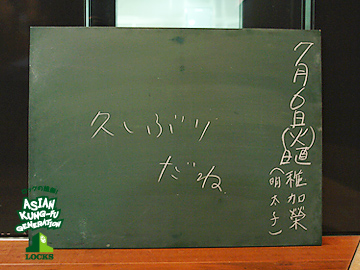 7月6日(火)
日直 稚加榮
(明太子)
久しぶり
だね
ASIAN
KUNG-FU
GENERATION
LOCKS